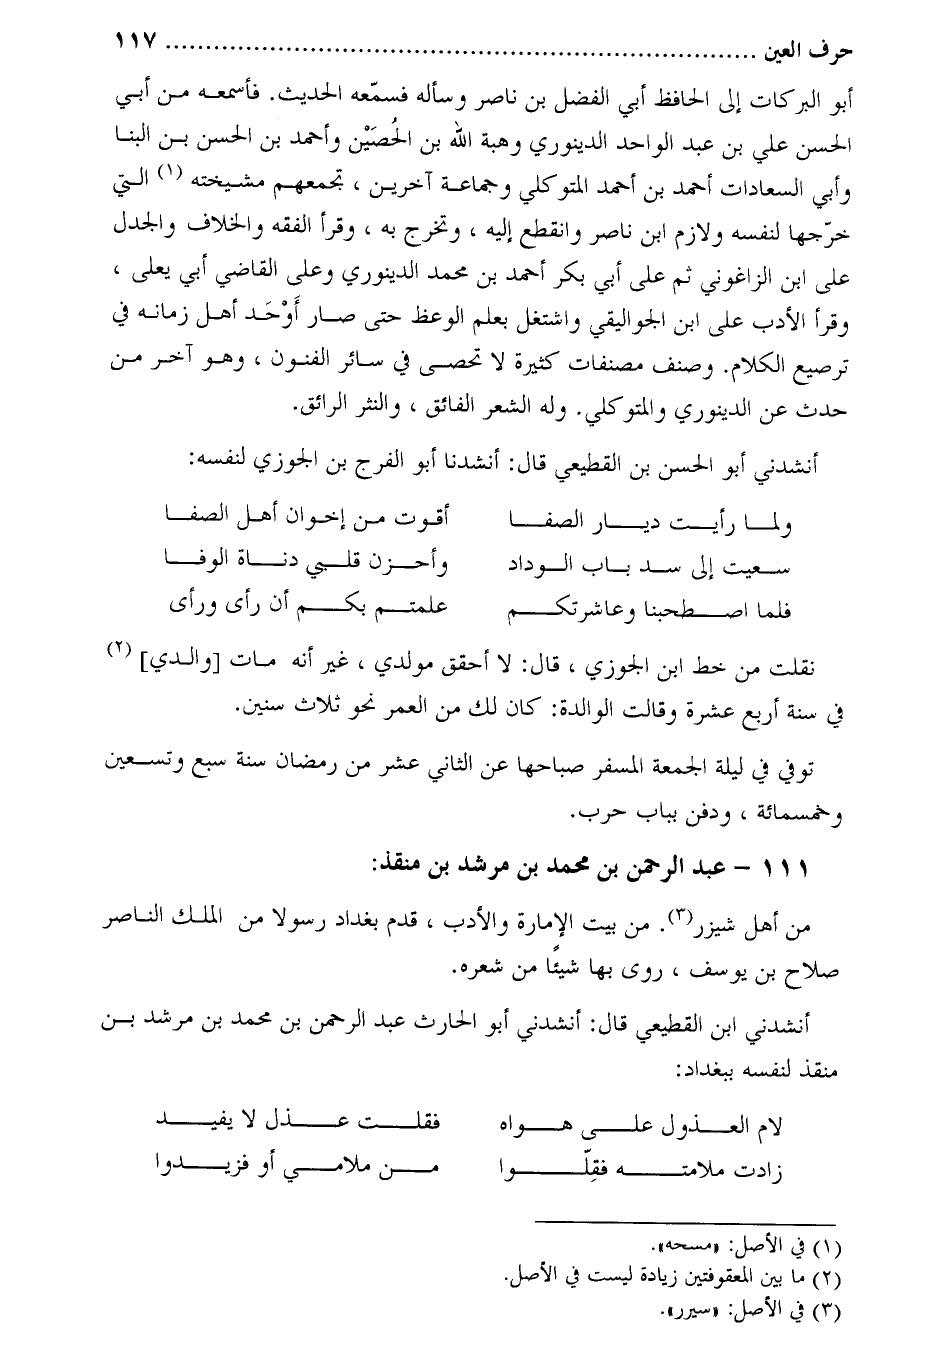 حرف العين ................................................................ ١١٧
أبو البركات إلى الحافظ أبي الفضل بن ناصر وسأله فسمّعه الحديث. فأسمعه من أبي
الحسن علي بن عبد الواحد الدينوري وهبة الله بن الحُصَيْن وأحمد بن الحسن بن البنا
وأبي السعادات أحمد بن أحمد المتوكلي وجماعة آخرين ، تجمعهم مشيخته (١) التي
خرّجها لنفسه ولازم ابن ناصر وانقطع إليه ، وتخرج به ، وقرأ الفقه والخلاف والجدل
على ابن الزاغوني ثم على أبي بكر أحمد بن محمد الدينوري وعلى القاضي أبي يعلى ،
وقرأ الأدب على ابن الجواليقي واشتغل بعلم الوعظ حتى صار أَوْحَد أهل زمانه في
ترصيع الكلام. وصنف مصنفات كثيرة لا تحصى في سائر الفنون ، وهو آخر من
حدث عن الدينوري والمتوكلي. وله الشعر الفائق ، والنثر الرائق.
أنشدني أبو الحسن بن القطيعي قال: أنشدنا أبو الفرج بن الجوزي لنفسه:
ولما رأيت ديار الصفا أقوت من إخوان أهل الصفا
سعيت إلى سد باب الوداد وأحزن قلبي دناة الوفا
فلما اصطحبنا وعاشرتكم علمتم بكم أن رأى ورأى
نقلت من خط ابن الجوزي ، قال: لا أحقق مولدي ، غير أنه مات [والدي] (٢)
في سنة أربع عشرة وقالت الوالدة: كان لك من العمر نحو ثلاث سنين.
توفي في ليلة الجمعة المسفر صباحها عن الثاني عشر من رمضان سنة سبع وتسعين
وخمسمائة ، ودفن بباب حرب.
١١١ – عبد الرحمن بن محمد بن مرشد بن منقذ:
من أهل شيزر(٣). من بيت الإمارة والأدب ، قدم بغداد رسولا من الملك الناصر
صلاح بن يوسف ، روى بها شيئًا من شعره.
أنشدني ابن القطيعي قال: أنشدني أبو الحارث عبد الرحمن بن محمد بن مرشد بن
منقذ لنفسه ببغداد:
لام العذول على هواه فقلت عذل لا يفيد
زادت ملامته فقِلّوا من ملامي أو فزيدوا
(١) في الأصل: «مسحه».
(٢) ما بين المعقوفتين زيادة ليست في الأصل.
(٣) في الأصل: «سيرر».